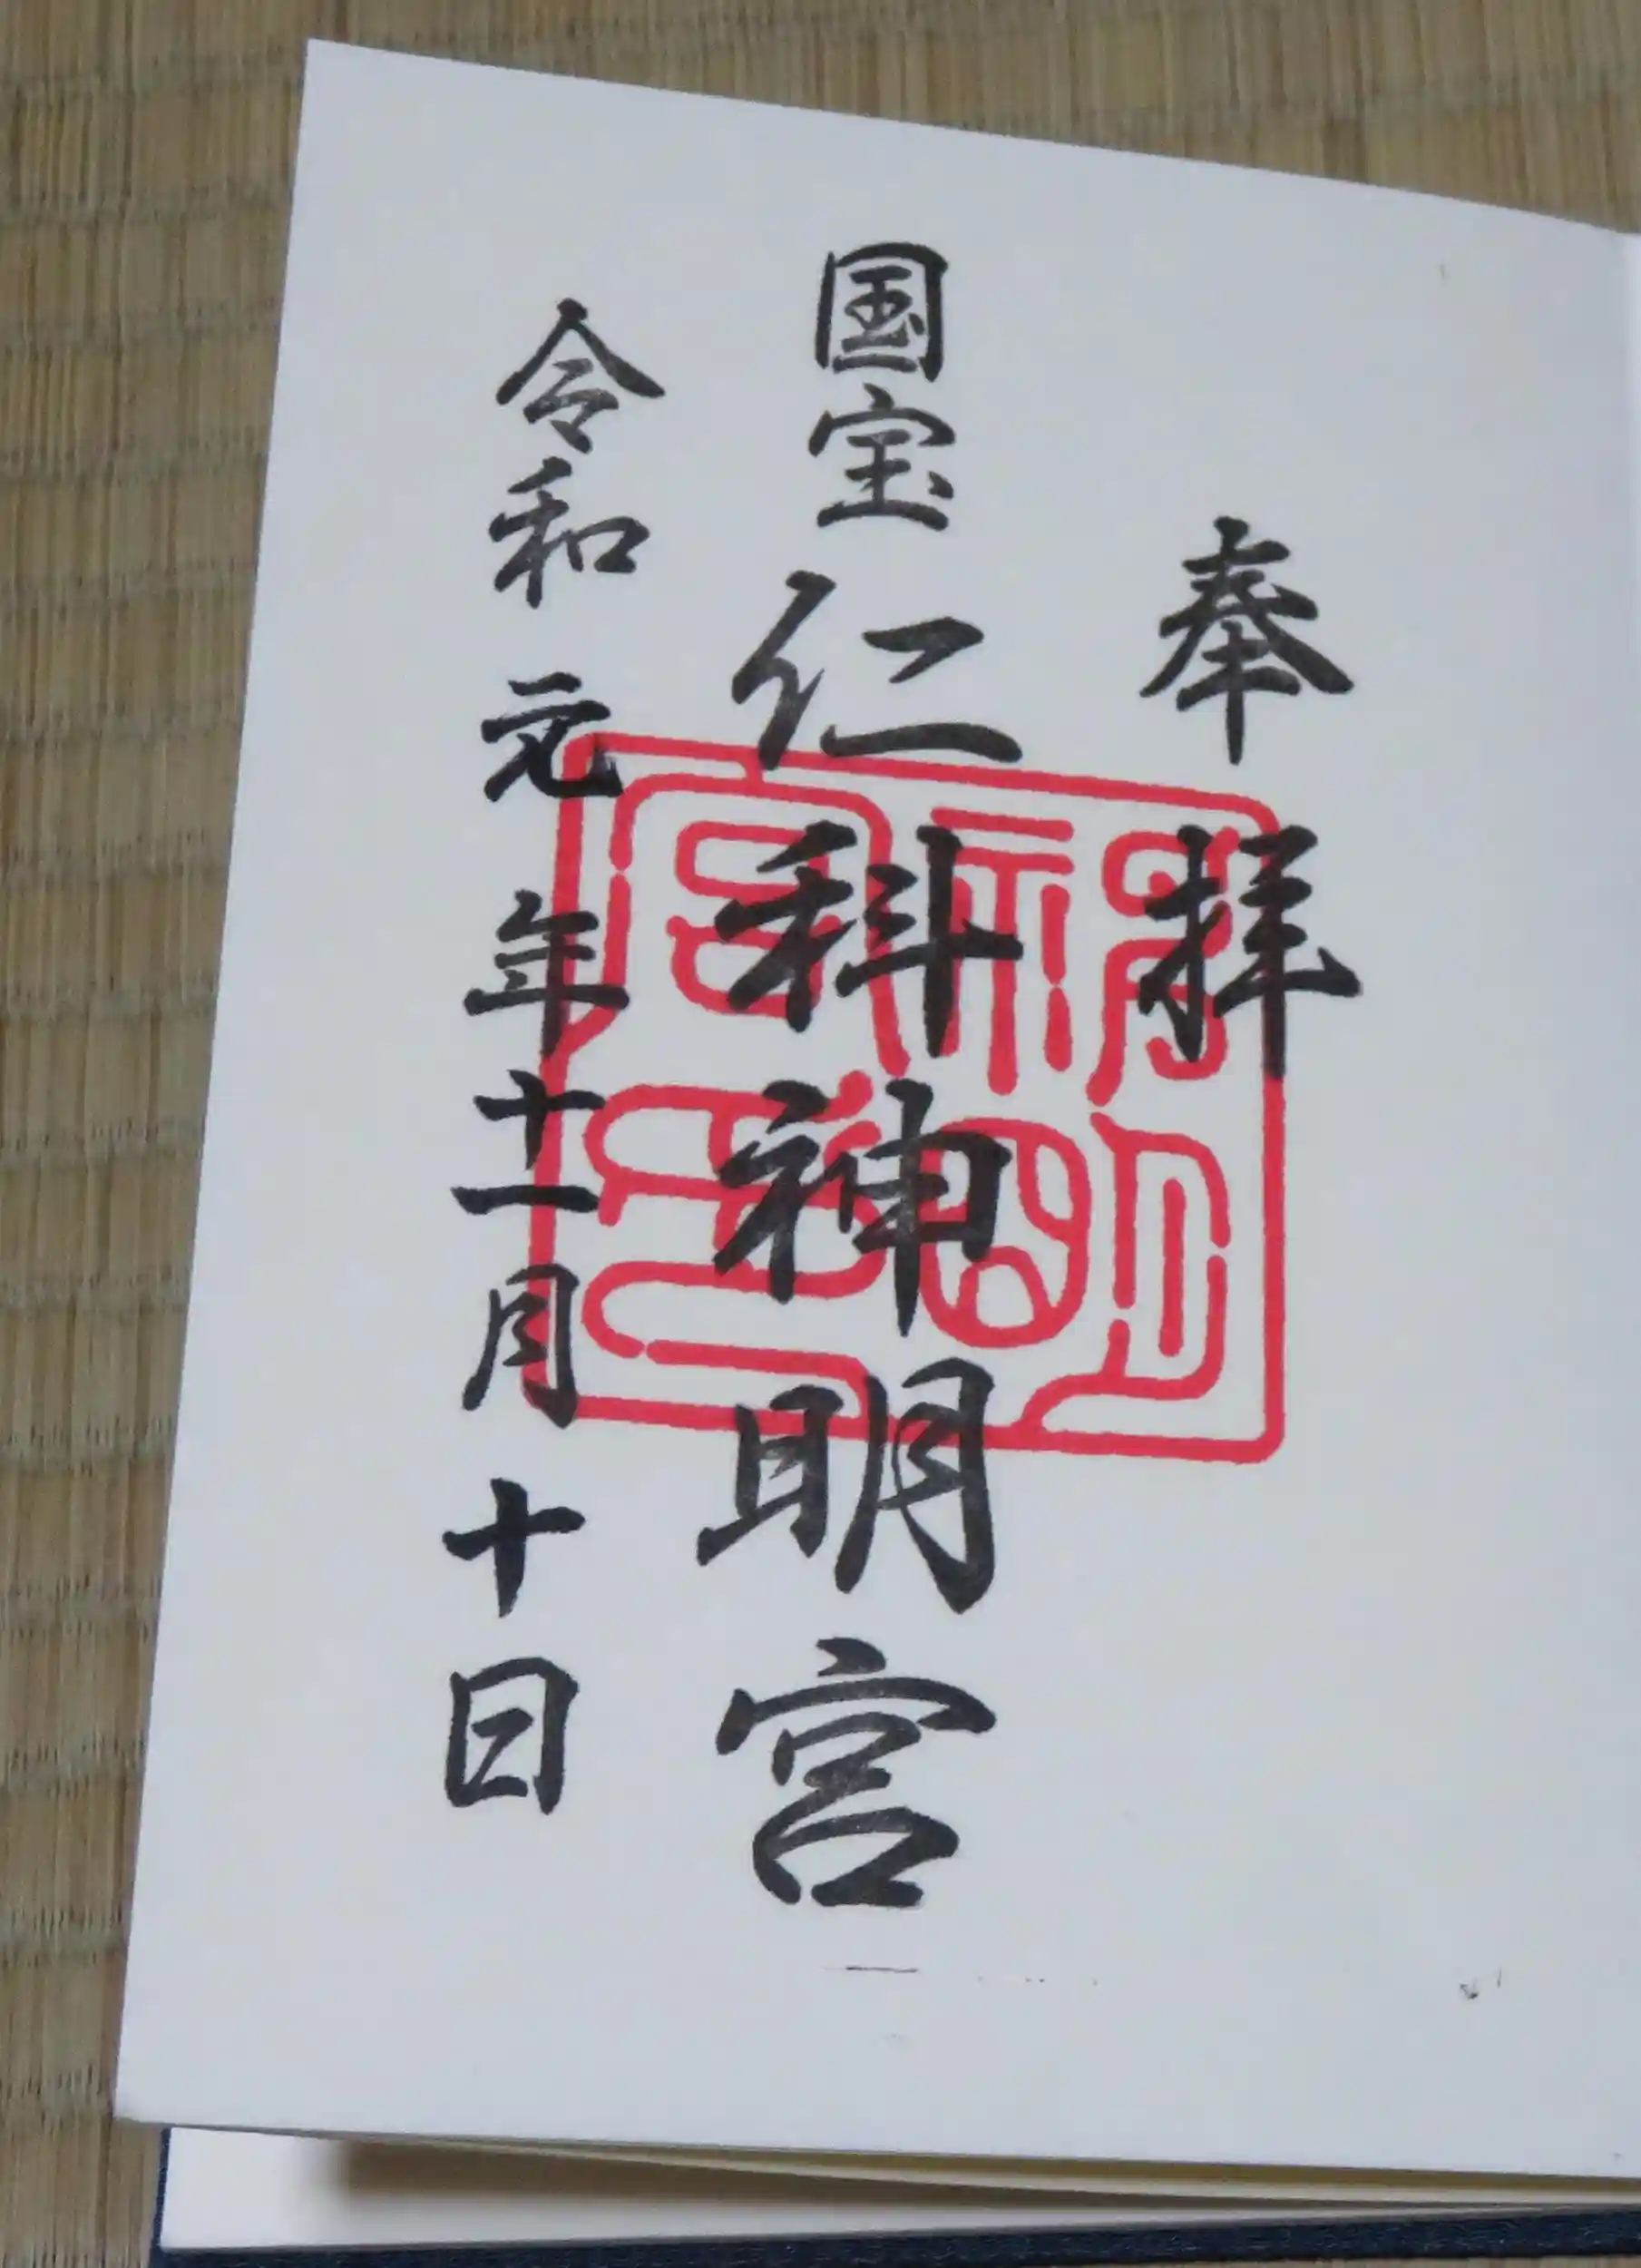 奉拝
国宝 仁科神明宮
令和元年十一月十日